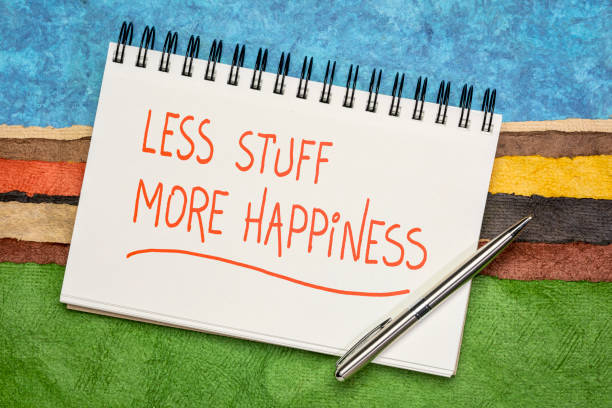 LESS STUFF
MORE HAPPINESS